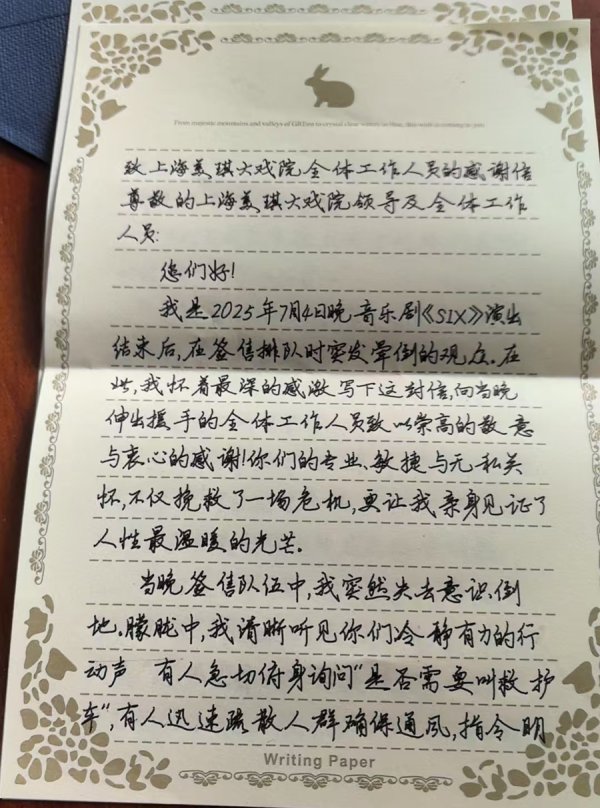 致上海美琪大戏院全体工作人员的感谢信
尊敬的上海美琪大戏院领导及全体工作
人员:
您们好!
我是2025年7月4日晚音乐剧《SIX》演出
结束后,在签售排队时突发晕倒的观众。在
此,我怀着最深的感激写下这封信,向当晚
伸出援手的全体工作人员致以崇高的敬意
与衷心的感谢!你们的专业、敏捷与无私关
怀,不仅挽救了一场危机,更让我亲身见证了
人性最温暖的光芒。
当晚签售队伍中,我突然失去意识倒
地。朦胧中,我清晰听见你们冷静有力的行
动声 有人急切俯身询问“是否需要叫救护
车”,有人迅速疏散人群确保通风,指令明
Writing Paper